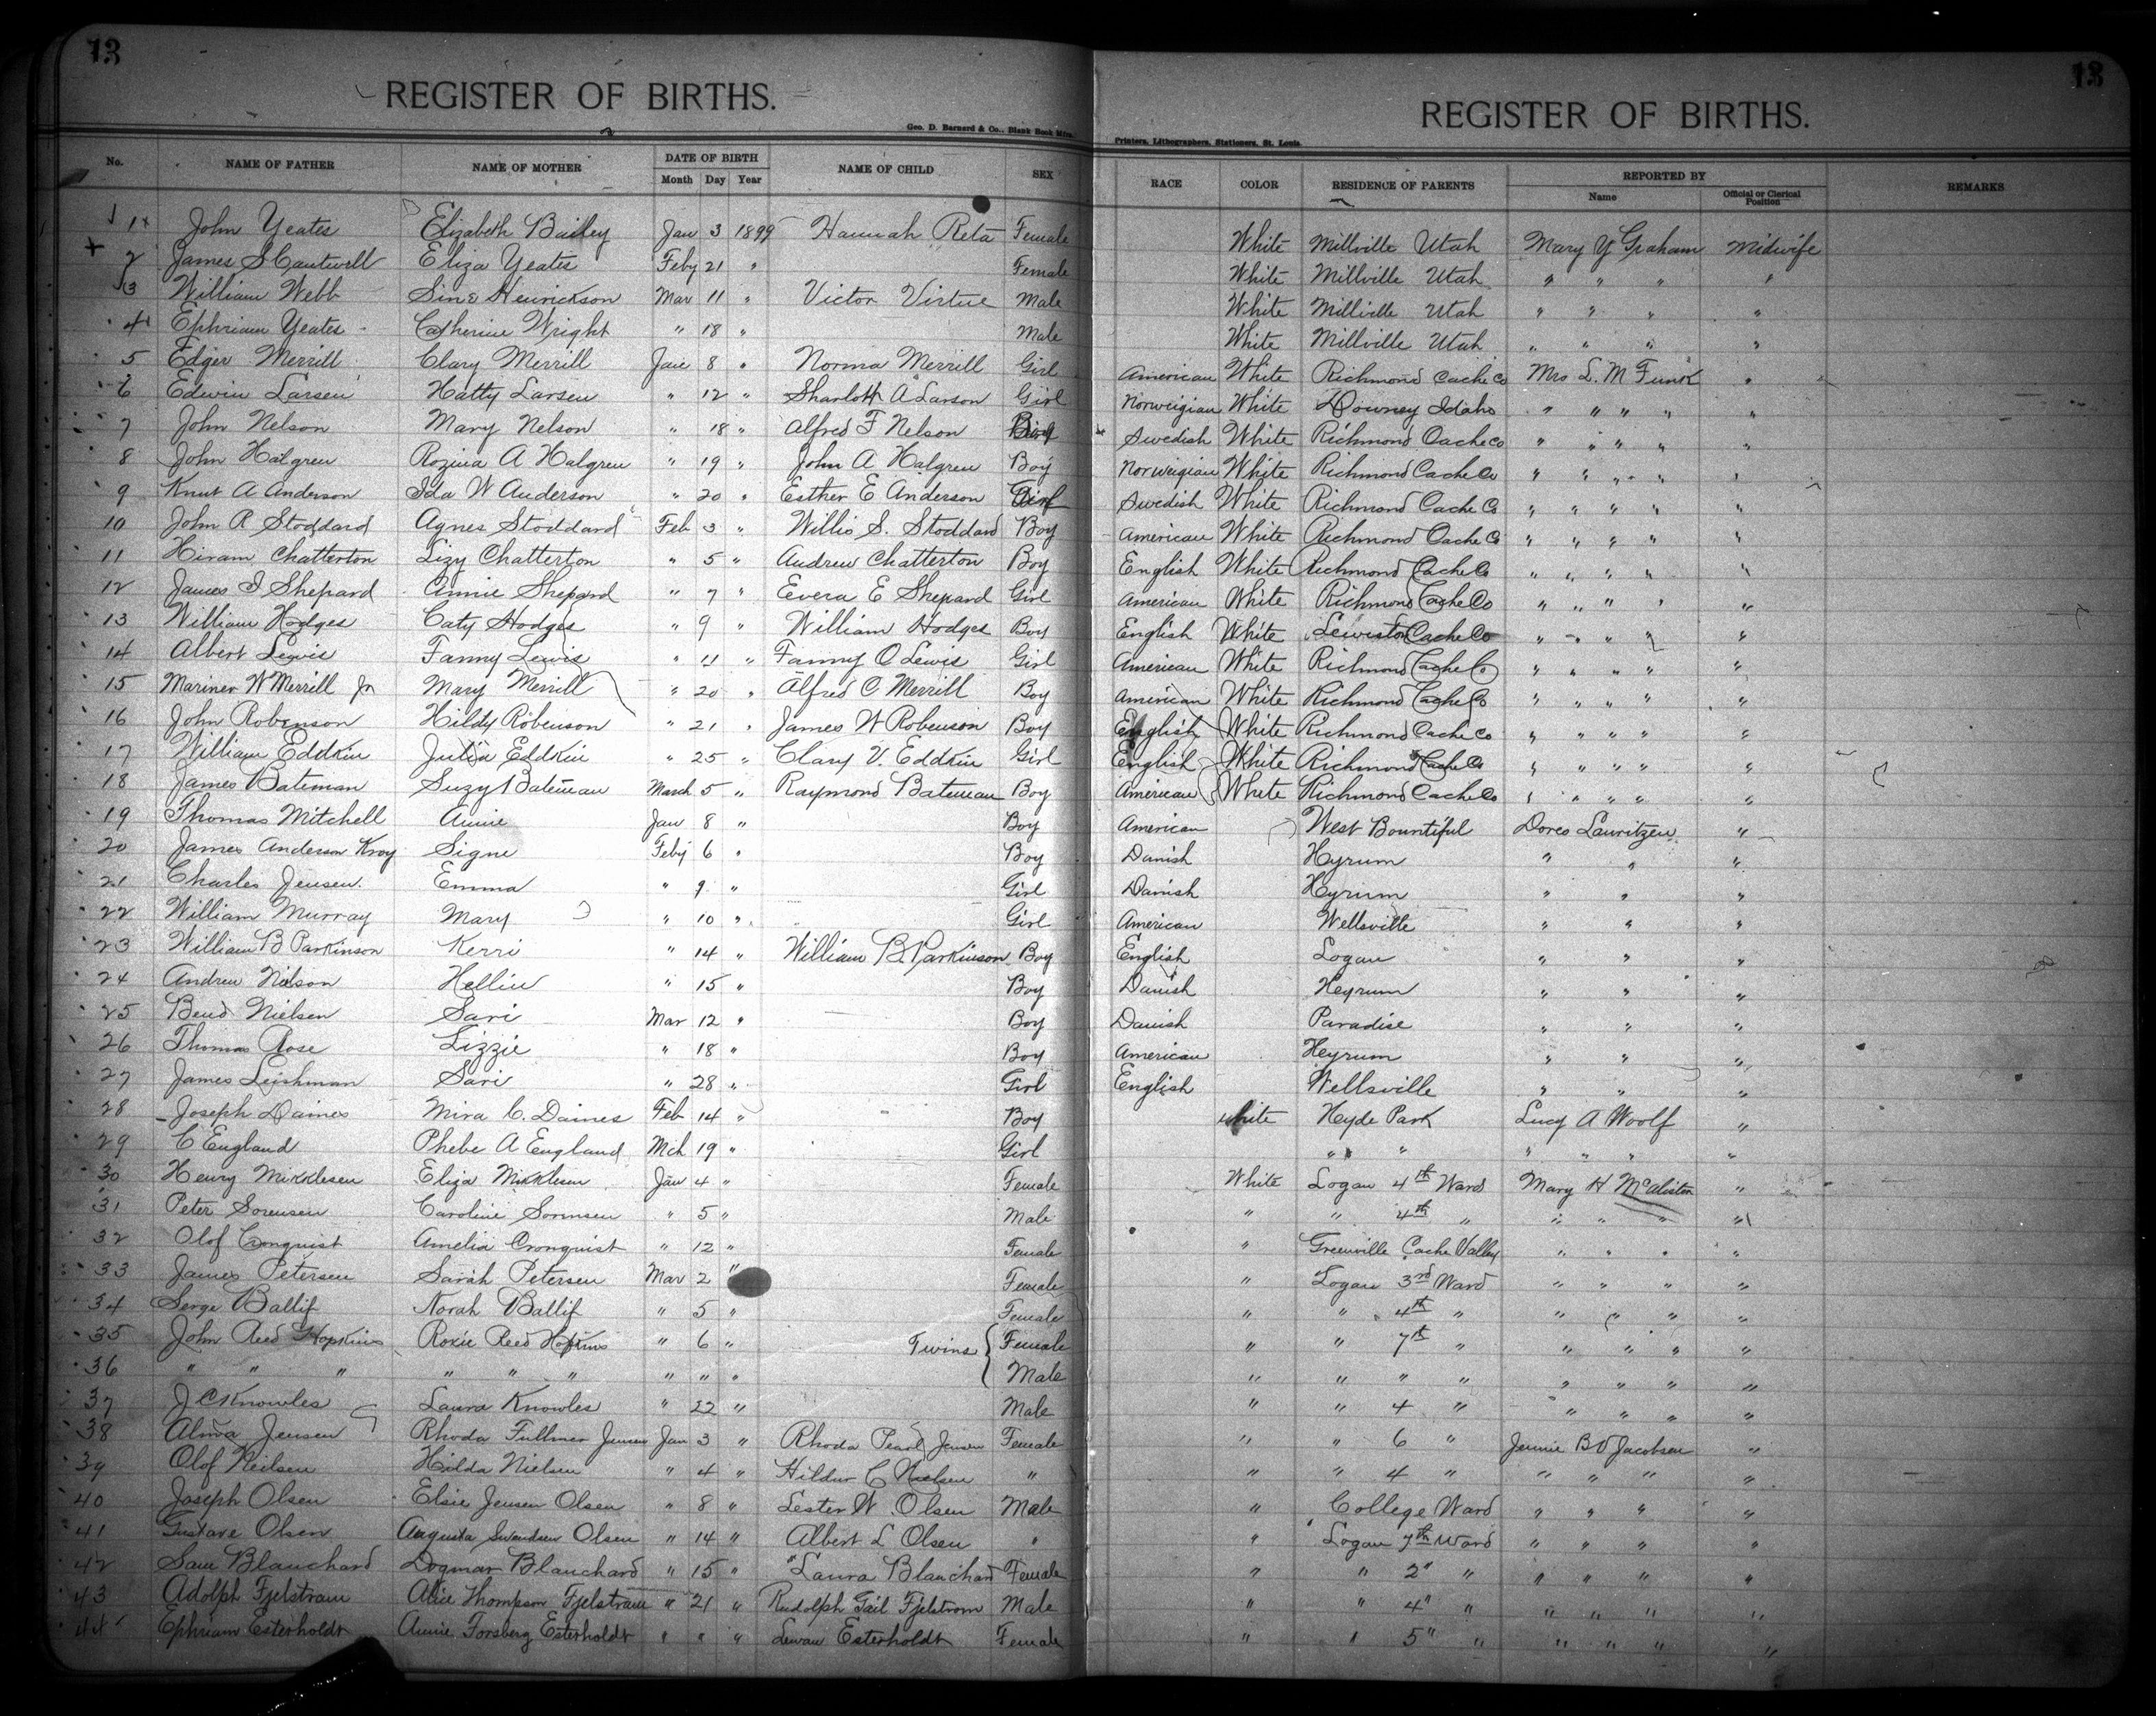 13 13
REGISTER OF BIRTHS. REGISTER OF BIRTHS.
Geo. D. Barnard & Co., Blank Book Mfrs. Printers, Lithographers, Stationers, St. Louis.
No. NAME OF FATHER NAME OF MOTHER DATE OF BIRTH NAME OF CHILD SEX RACE COLOR RESIDENCE OF PARENTS REPORTED BY REMARKS
Month Day Year Name Official or Clerical Position
1 John Yeates Elizabeth Bailey Jan 3 1899 Hannah Reta Female White Millville Utah Mary Y Graham Midwife
2 James S Cantwell Eliza Yeates Feby 21 " Female White Millville Utah " " " "
3 William Webb Sine Henrickson Mar 11 " Victor Virtue Male White Millville Utah " " " "
4 Ephriam Yeates Catherine Wright " 18 " Male White Millville Utah " " " "
5 Edger Merrill Clary Merrill Jan 8 " Norma Merrill Girl American White Richmond Cache Co Mrs L. M Funk "
6 Edwin Larsen Hatty Larsen " 12 " Sharlott A Larson Girl Norweigian White Downey Idaho " " " " "
7 John Nelson Mary Nelson " 18 " Alfred F Nelson Swedish White Richmond Cache Co " " " " "
8 John Halgren Rozina A Halgren " 19 " John A Halgren Boy Norweigian White Richmond Cache Co " " " " "
9 Knut A Anderson Ida W Anderson " 20 " Esther E Anderson Girl Swedish White Richmond Cache Co " " " " "
10 John R Stoddard Agnes Stoddard Feb 3 " Willis S. Stoddard Boy American White Richmond Cache Co " " " " "
11 Hiram Chatterton Lizy Chatterton " 5 " Andrew Chatterton Boy English White Richmond Cache Co " " " " "
12 James I Shepard Annie Shepard " 7 " Evera E Shepard Girl American White Richmond Cache Co " " " " "
13 William Hodges Caty Hodges " 9 " William Hodges Boy English White Lewiston Cache Co " " " " "
14 Albert Lewis Fanny Lewis " 11 " Fanny O Lewis Girl American White Richmond Cache Co " " " " "
15 Mariner W Merrill Jr Mary Merrill " 20 " Alfred C Merrill Boy American White Richmond Cache Co " " " " "
16 John Robenson Hildy Robenson " 21 " James W Robenson Boy English White Richmond Cache Co " " " " "
17 William Eddkin Julia Eddkin " 25 " Clary V. Eddkin Girl English White Richmond Cache Co " " " " "
18 James Bateman Suzy Bateman March 5 " Raymond Bateman Boy American White Richmond Cache Co " " " " "
19 Thomas Mitchell Annie Jan 8 " Boy American West Bountiful Dores Lauritzen "
20 James Anderson Kroy Signe Feby 6 " Boy Danish Hyrum " " "
21 Charles Jensen Emma " 9 " Girl Danish Hyrum " " "
22 William Murray Mary " 10 " Girl American Wellsville " " "
23 William B Parkinson Kerri " 14 " William B. Parkinson Boy English Logan " " "
24 Andrew Nelson Hellin " 15 " Boy Danish Heyrum " " "
25 Bend Nielsen Sari Mar 12 " Boy Danish Paradise " " "
26 Thomas Rose Lizzie " 18 " Boy American Heyrum " " "
27 James Leishman Sari " 28 " Girl English Wellsville " " "
28 Joseph Daines Mira C. Daines Feb 14 " Boy white Hyde Park Lucy A Woolf "
29 C England Phebe A England Mch 19 " Girl " " " " " "
30 Henry Mikklesen Eliza Mikklesen Jan 4 " Female White Logan 4th Ward Mary H McAlister "
31 Peter Sorensen Caroline Sorensen " 5 " Male " " 4th " " " " "
32 Olof Cronquist Amelia Cronquist " 12 " Female " Greenville Cache Valley " " " "
33 James Petersen Sarah Petersen Mar 2 " Female " Logan 3rd Ward " " " "
34 Serge Ballif Norah Ballif " 5 " Female " " 4th " " " " "
35 John Reed Hopkins Roxie Reed Hopkins " 6 " Twins { Female " " 7th " " " " "
36 " " " " " " " " " Male " " " " " " " "
37 J C Knowles Laura Knowles " 22 " Male " " 4 " " " " "
38 Alma Jensen Rhoda Fullmer Jensen Jan 3 " Rhoda Pearl Jensen Female " " 6 " Jennie B D Jacobsen "
39 Olof Neilsen Hilda Nielsen " 4 " Hildur C Nielsen " " " 4 " " " " "
40 Joseph Olsen Elsie Jensen Olsen " 8 " Lester W. Olsen Male " College Ward " " " "
41 Gustave Olsen Augusta Swendsen Olsen " 14 " Albert L Olsen " " Logan 7th Ward " " " "
42 Sam Blanchard Dogmar Blanchard " 15 " Laura Blanchard Female " " 2" " " " " "
43 Adolph Fjelstrom Alice Thompson Fjelstrom " 21 " Rudolph Gail Fjelstrom Male " " 4" " " " " "
44 Ephriam Esterholdt Annie Forsberg Esterholdt " " " Lewan Esterholdt Female " " 5" " " " " "